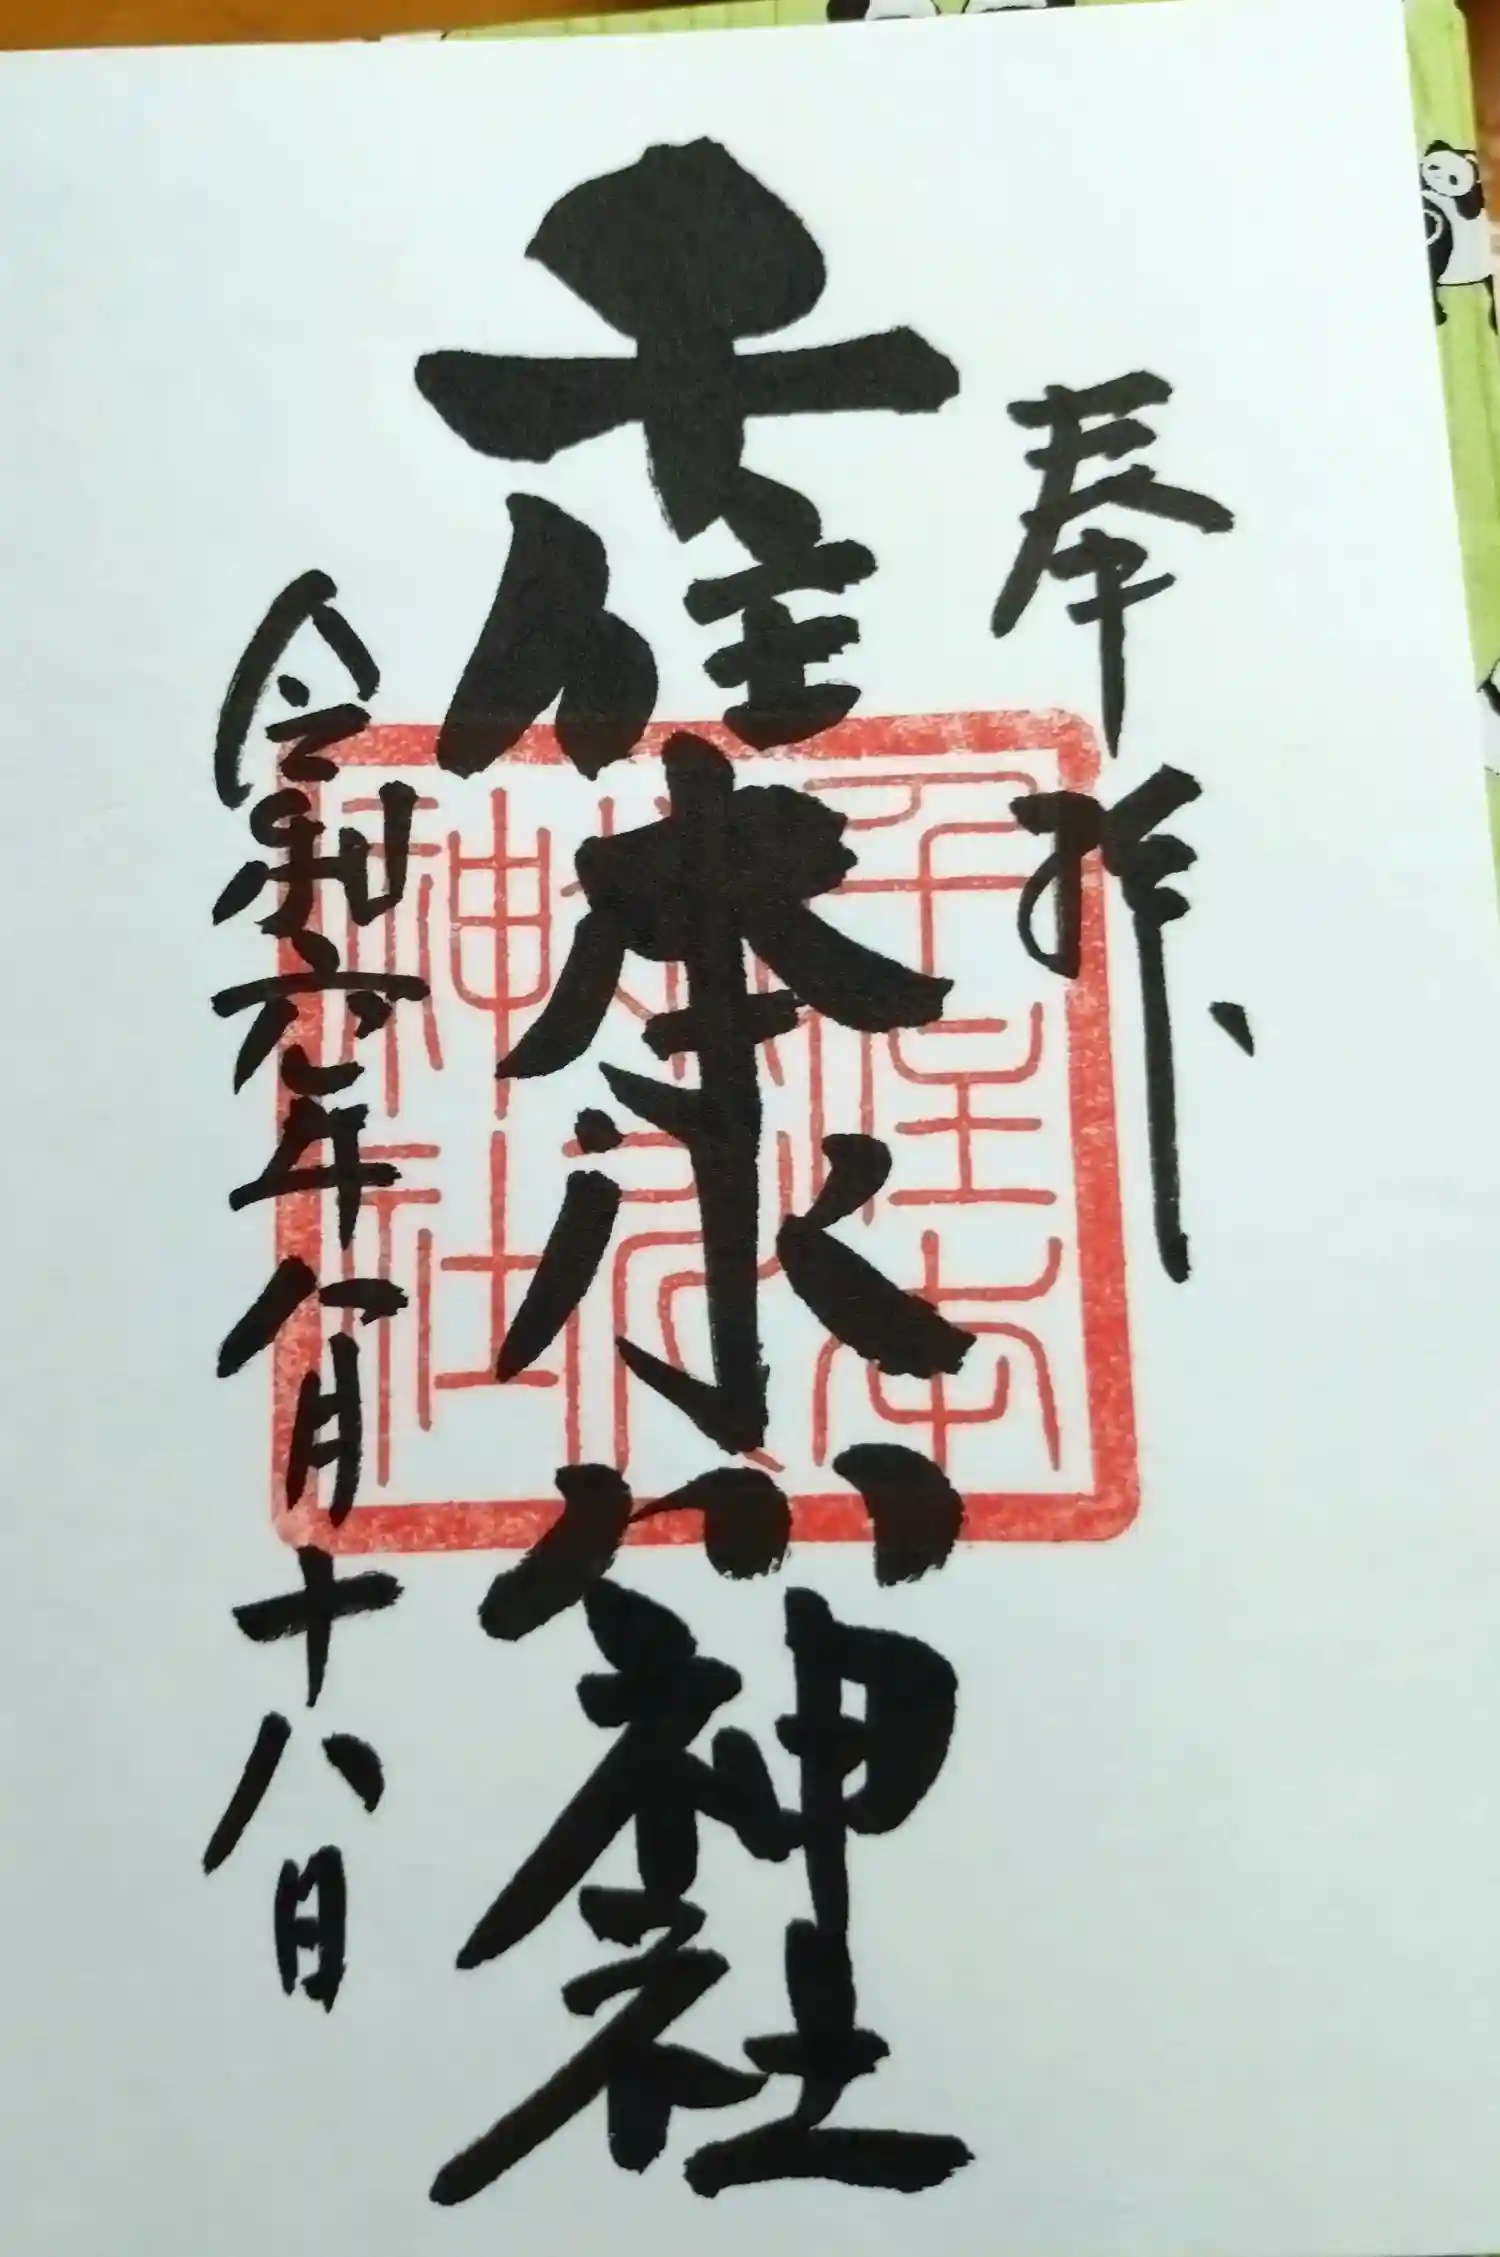 奉拝
千住本氷川神社
千住本
氷川
神社
令和六年八月十八日